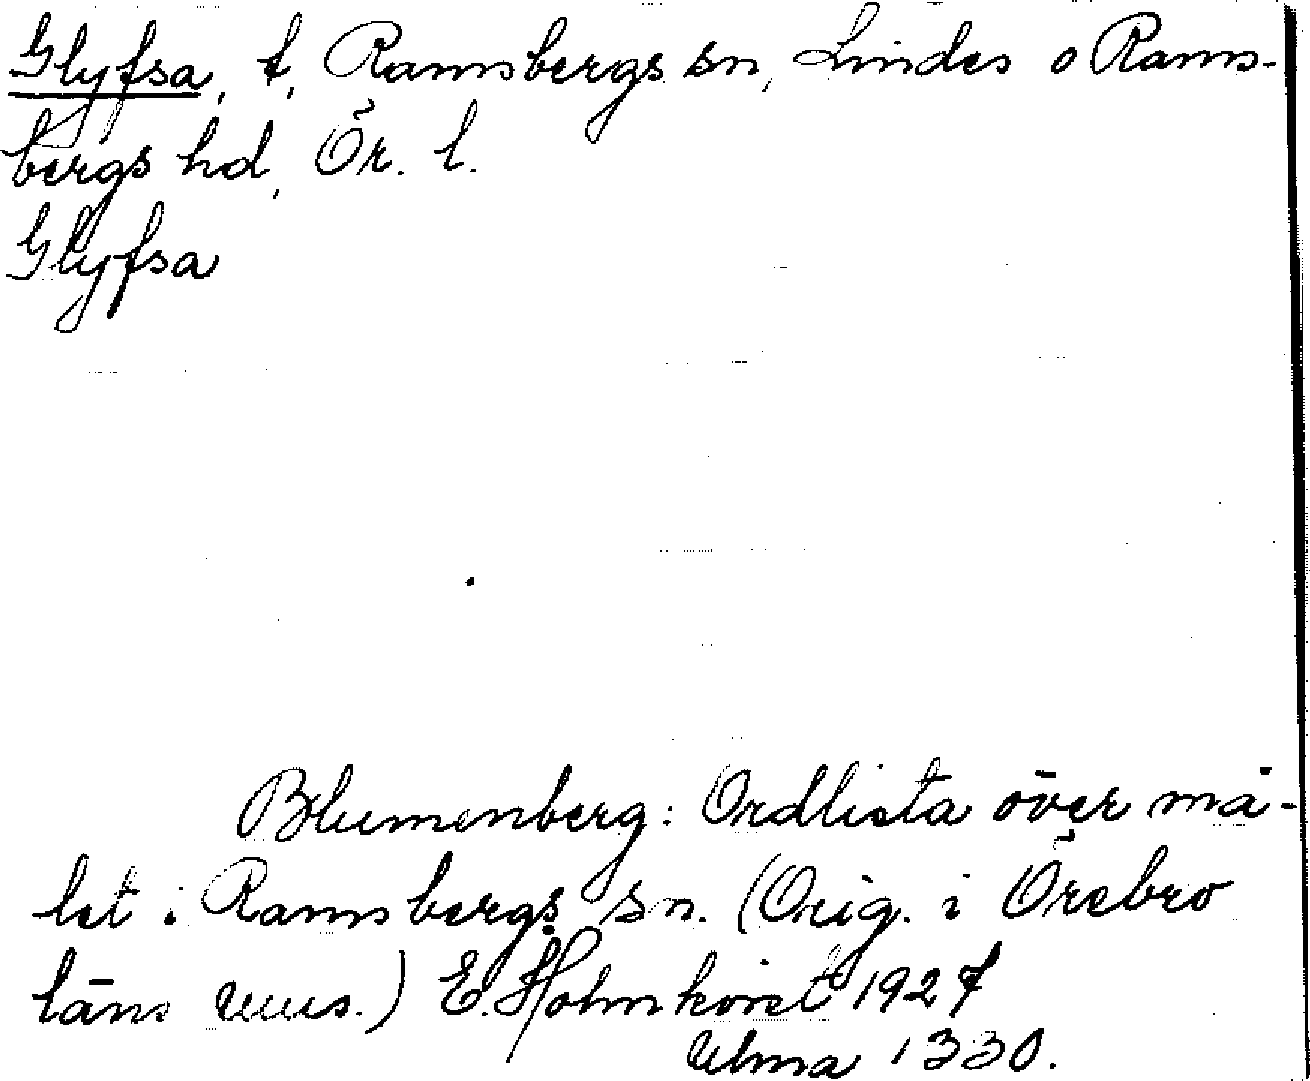 Glyfsa, t, Ramsbergs sn, Lindes o Rams-
bergs hd, Ör. l.
Glyfsa
Blumenberg: Ordlista över må-
let i Ramsbergs sn. (Orig. i Örebro
läns mus.) E. Holmkvist 1927
Ulma 1330.